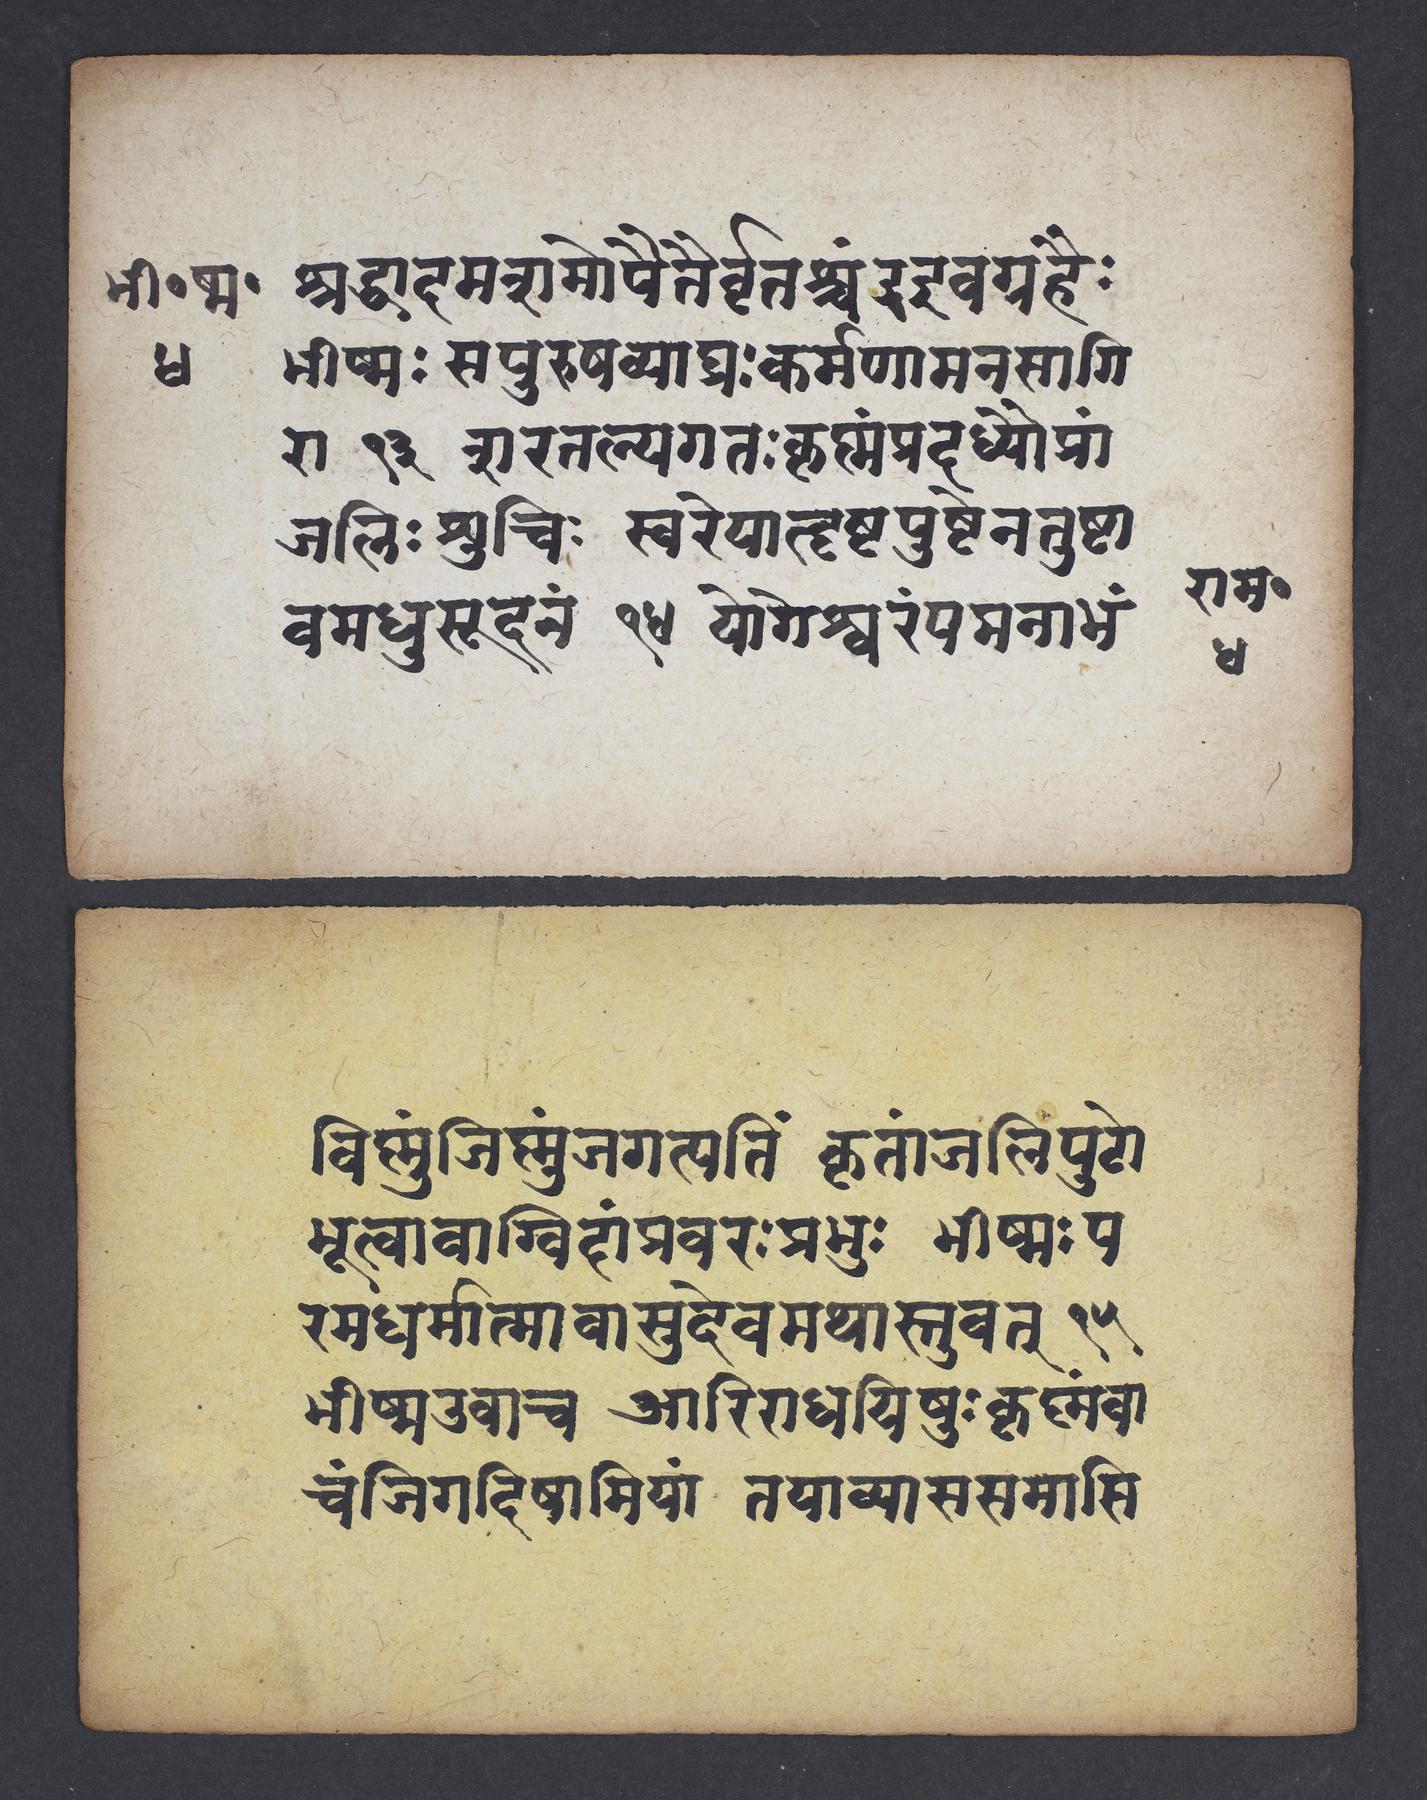 भी॰ष्म॰
४
श्रद्धादमशमोपेतैर्वृतश्चंद्रइवग्रहैः
भीष्मः सपुरुषव्याघ्रःकर्मणामनसागि
रा १३ शरतल्पगतःकृष्णंप्रदध्यौप्रां
जलिः शुचिः स्वरेणहृष्टपुष्टेनतुष्टा
वमधुसूदनं १४ योगेश्वरंपद्मनाभं
राम॰
४
विष्णुंजिष्णुंजगत्पतिं कृतांजलिपुटो
भूत्वावाग्विदांप्रवरःप्रभुः भीष्मःप
रमधर्मात्मावासुदेवमथास्तुवत् १५
भीष्मउवाच आरिराधयिषुःकृष्णंवा
चंजिगदिषामियां तयाव्याससमासि